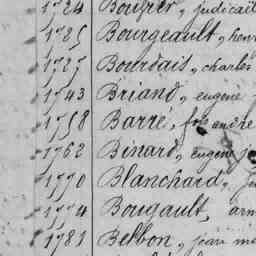 1724 Bouyer, judicaël
1725 Bourgeault, henr
1727 Bourdais, charles
1743 Briand, eugène
1758 Barré, fçe andré
1762 Binard, eugène je
1770 Blanchard, ju
1774 Bougault, arm
1781 Bebbon, jean ma